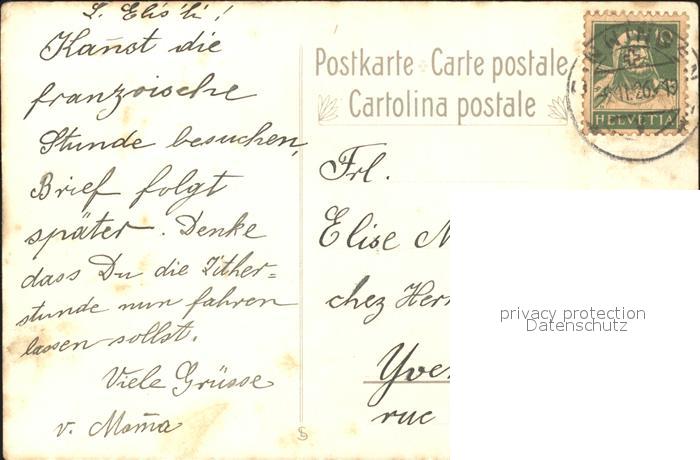 L. Elis'li!
Kannst die
franzoische
Stunde besuchen,
Brief folgt
später. Denke
dass Du die Zither=
stunde nun fahren
lassen sollst.
Viele Grüsse
v. Mama
Postkarte Carte postale
Cartolina postale
10
HELVETIA
Frl.
Elise
chez
Yver
rue
privacy protection
Datenschutz